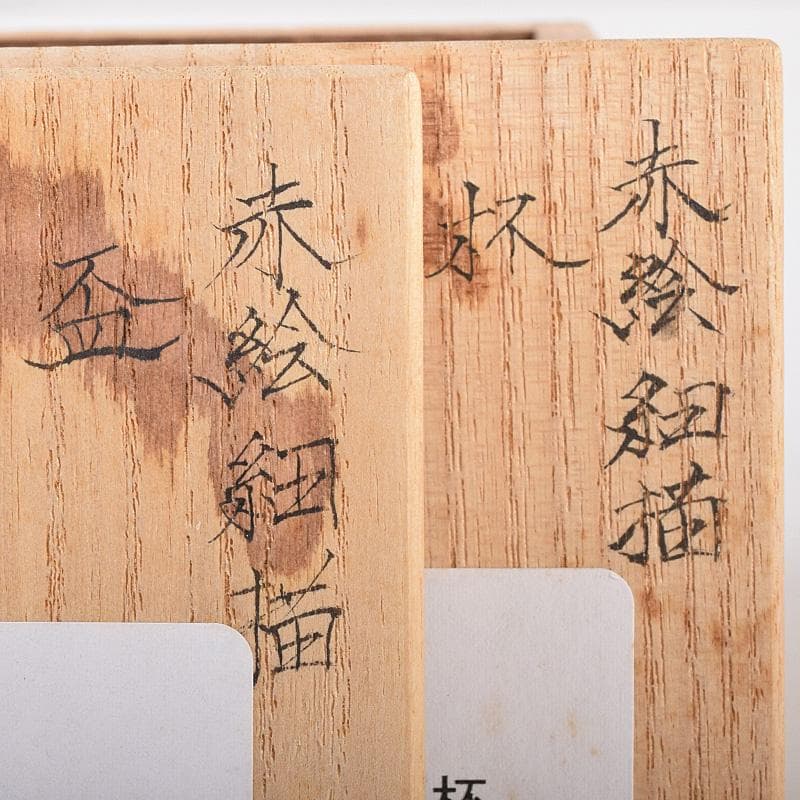 赤絵細描
杯
赤絵細描
盃
杯